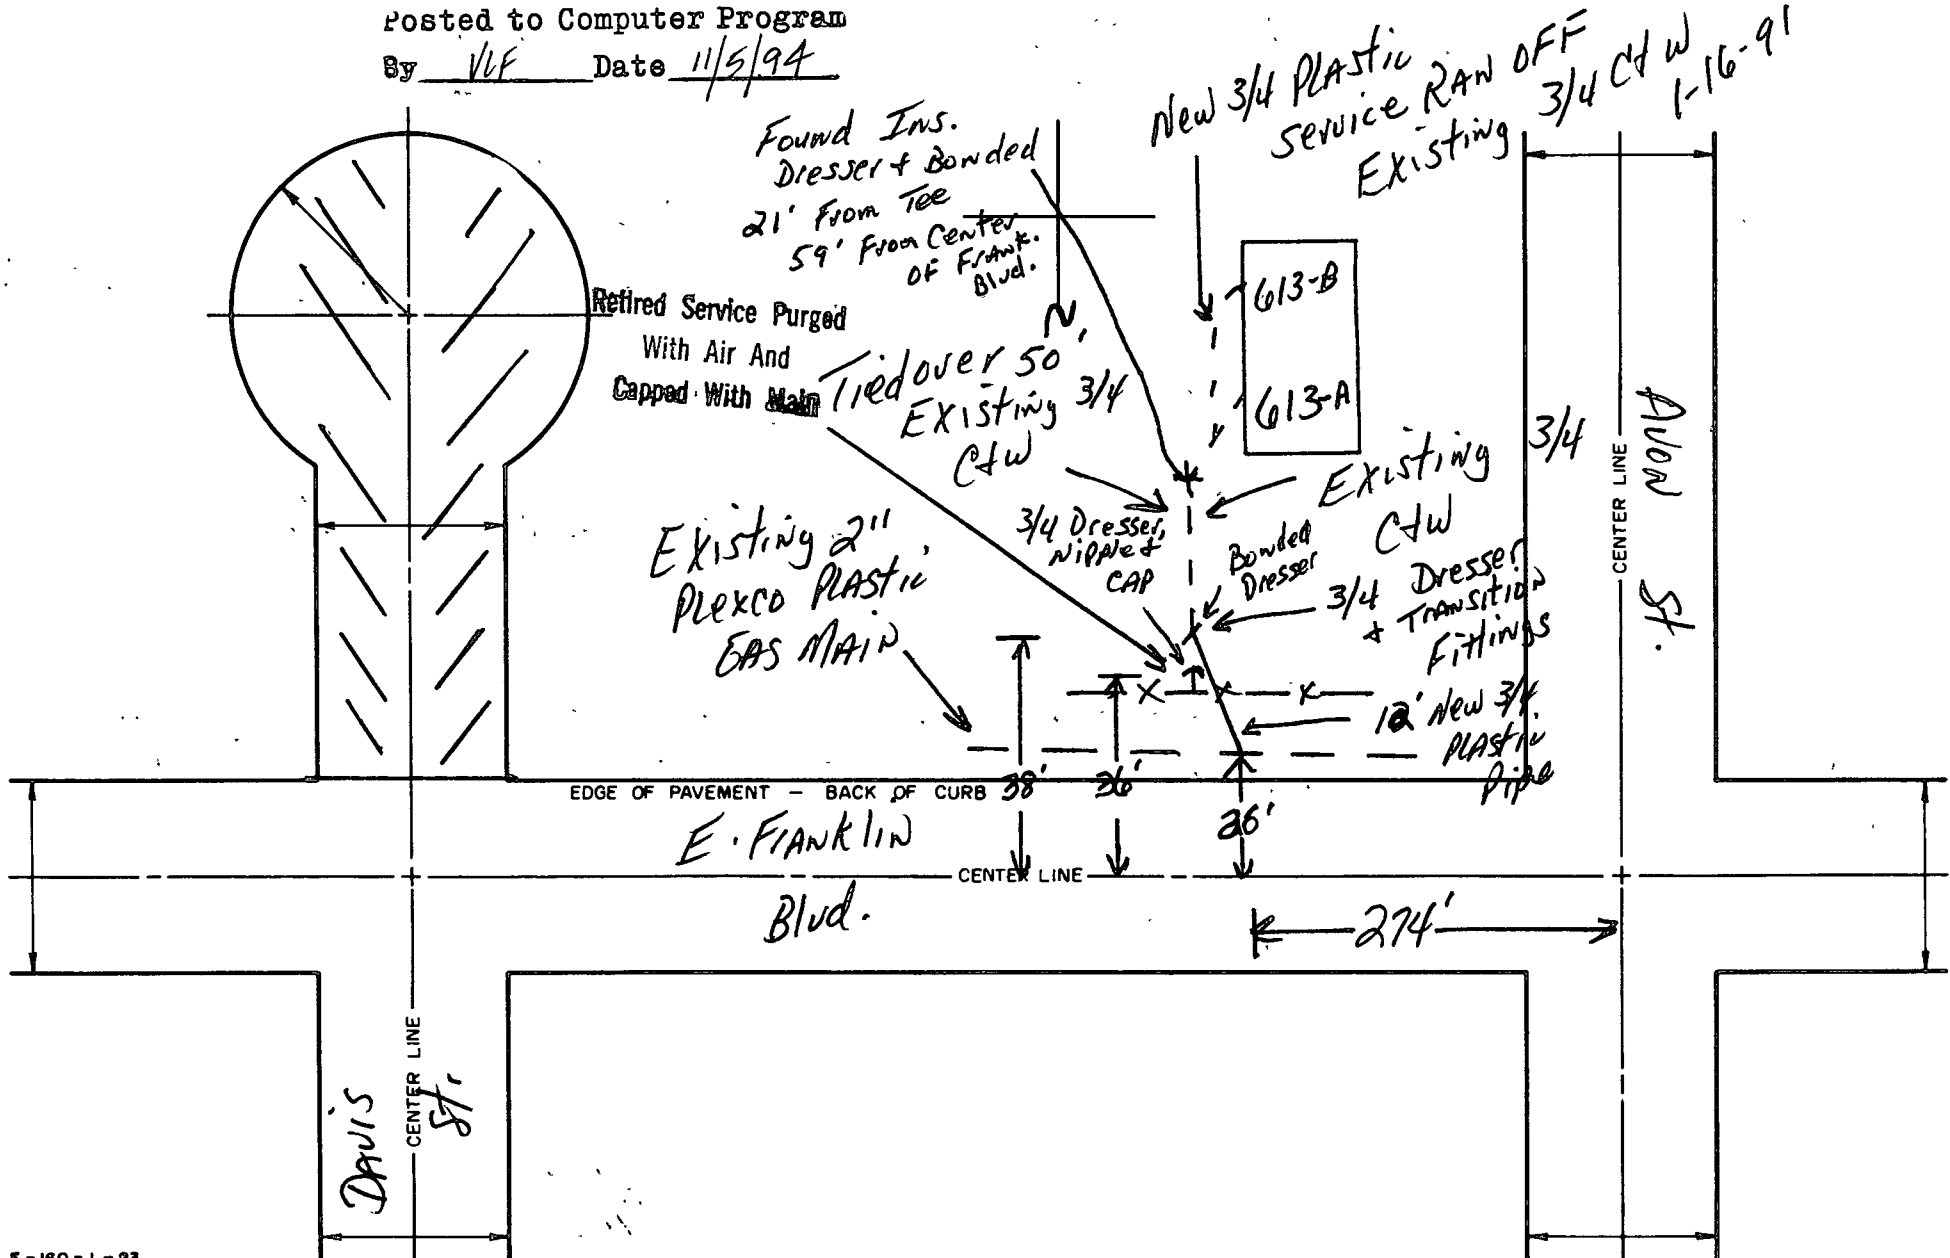 Posted to Computer Program
By VLF Date 11/5/94
New 3/4 PLASTic
Service RAN OFF
Existing 3/4 C+W
1-16-91
Found Ins.
Dresser + Bonded
21' From Tee
59' From Center
OF Frank.
Blvd.
Retired Service Purged
With Air And
Capped With Main
Tied over 50'
Existing 3/4
C+W
N
613-B
613-A
3/4
Avon St.
CENTER LINE
Existing
C+W
3/4 Dresser,
Nipple +
CAP
Bonded
Dresser
3/4 Dresser
+ TRANSITION
Fittings
Existing 2"
Plexco PLASTic
GAS MAIN
New 3/4
PLASTic
Pipe
EDGE OF PAVEMENT - BACK OF CURB
38'
36'
E. FRANKLIN
Blvd.
CENTER LINE
274'
DAVIS St.
CENTER LINE